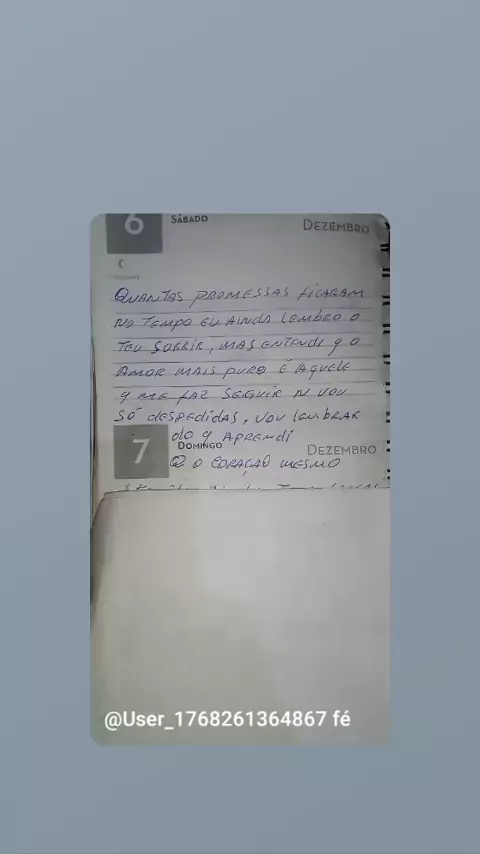 6 SÁBADO DEZEMBRO
QUANTAS PROMESSAS FICARAM
NO TEMPO EU AINDA LEMBRO O
TEU SORRIR, MAS ENTENDI q O
AMOR MAIS PURO É AQUELE
q ME FAZ SEGUIR N VOU
SÓ DESPEDIDAS, VOU LEMBRAR
do q APRENDI
7 DOMINGO DEZEMBRO
Q O CORAÇÃO MESMO
@User_1768261364867 fé